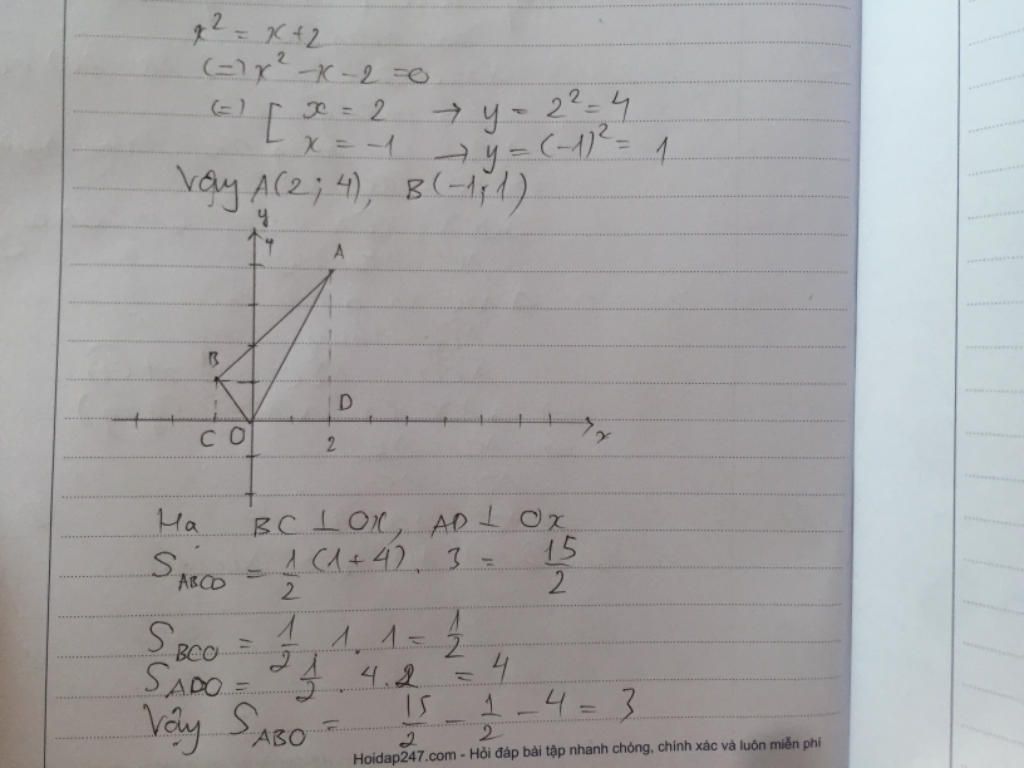 x² = x+2
(=) x² - x - 2 = 0
(=) [ x = 2 → y = 2² = 4
x = -1 → y = (-1)² = 1
Vậy A(2; 4), B(-1; 1)
y
4
A
B
D
C O 2 x
Hạ BC ⊥ Ox, AD ⊥ Ox
S_ABCD = 1/2 (1+4). 3 = 15/2
S_BCO = 1/2 1. 1 = 1/2
S_ADO = 1/2 . 4.2 = 4
Vậy S_ABO = 15/2 - 1/2 - 4 = 3
Hoidap247.com - Hỏi đáp bài tập nhanh chóng, chính xác và luôn miễn phí